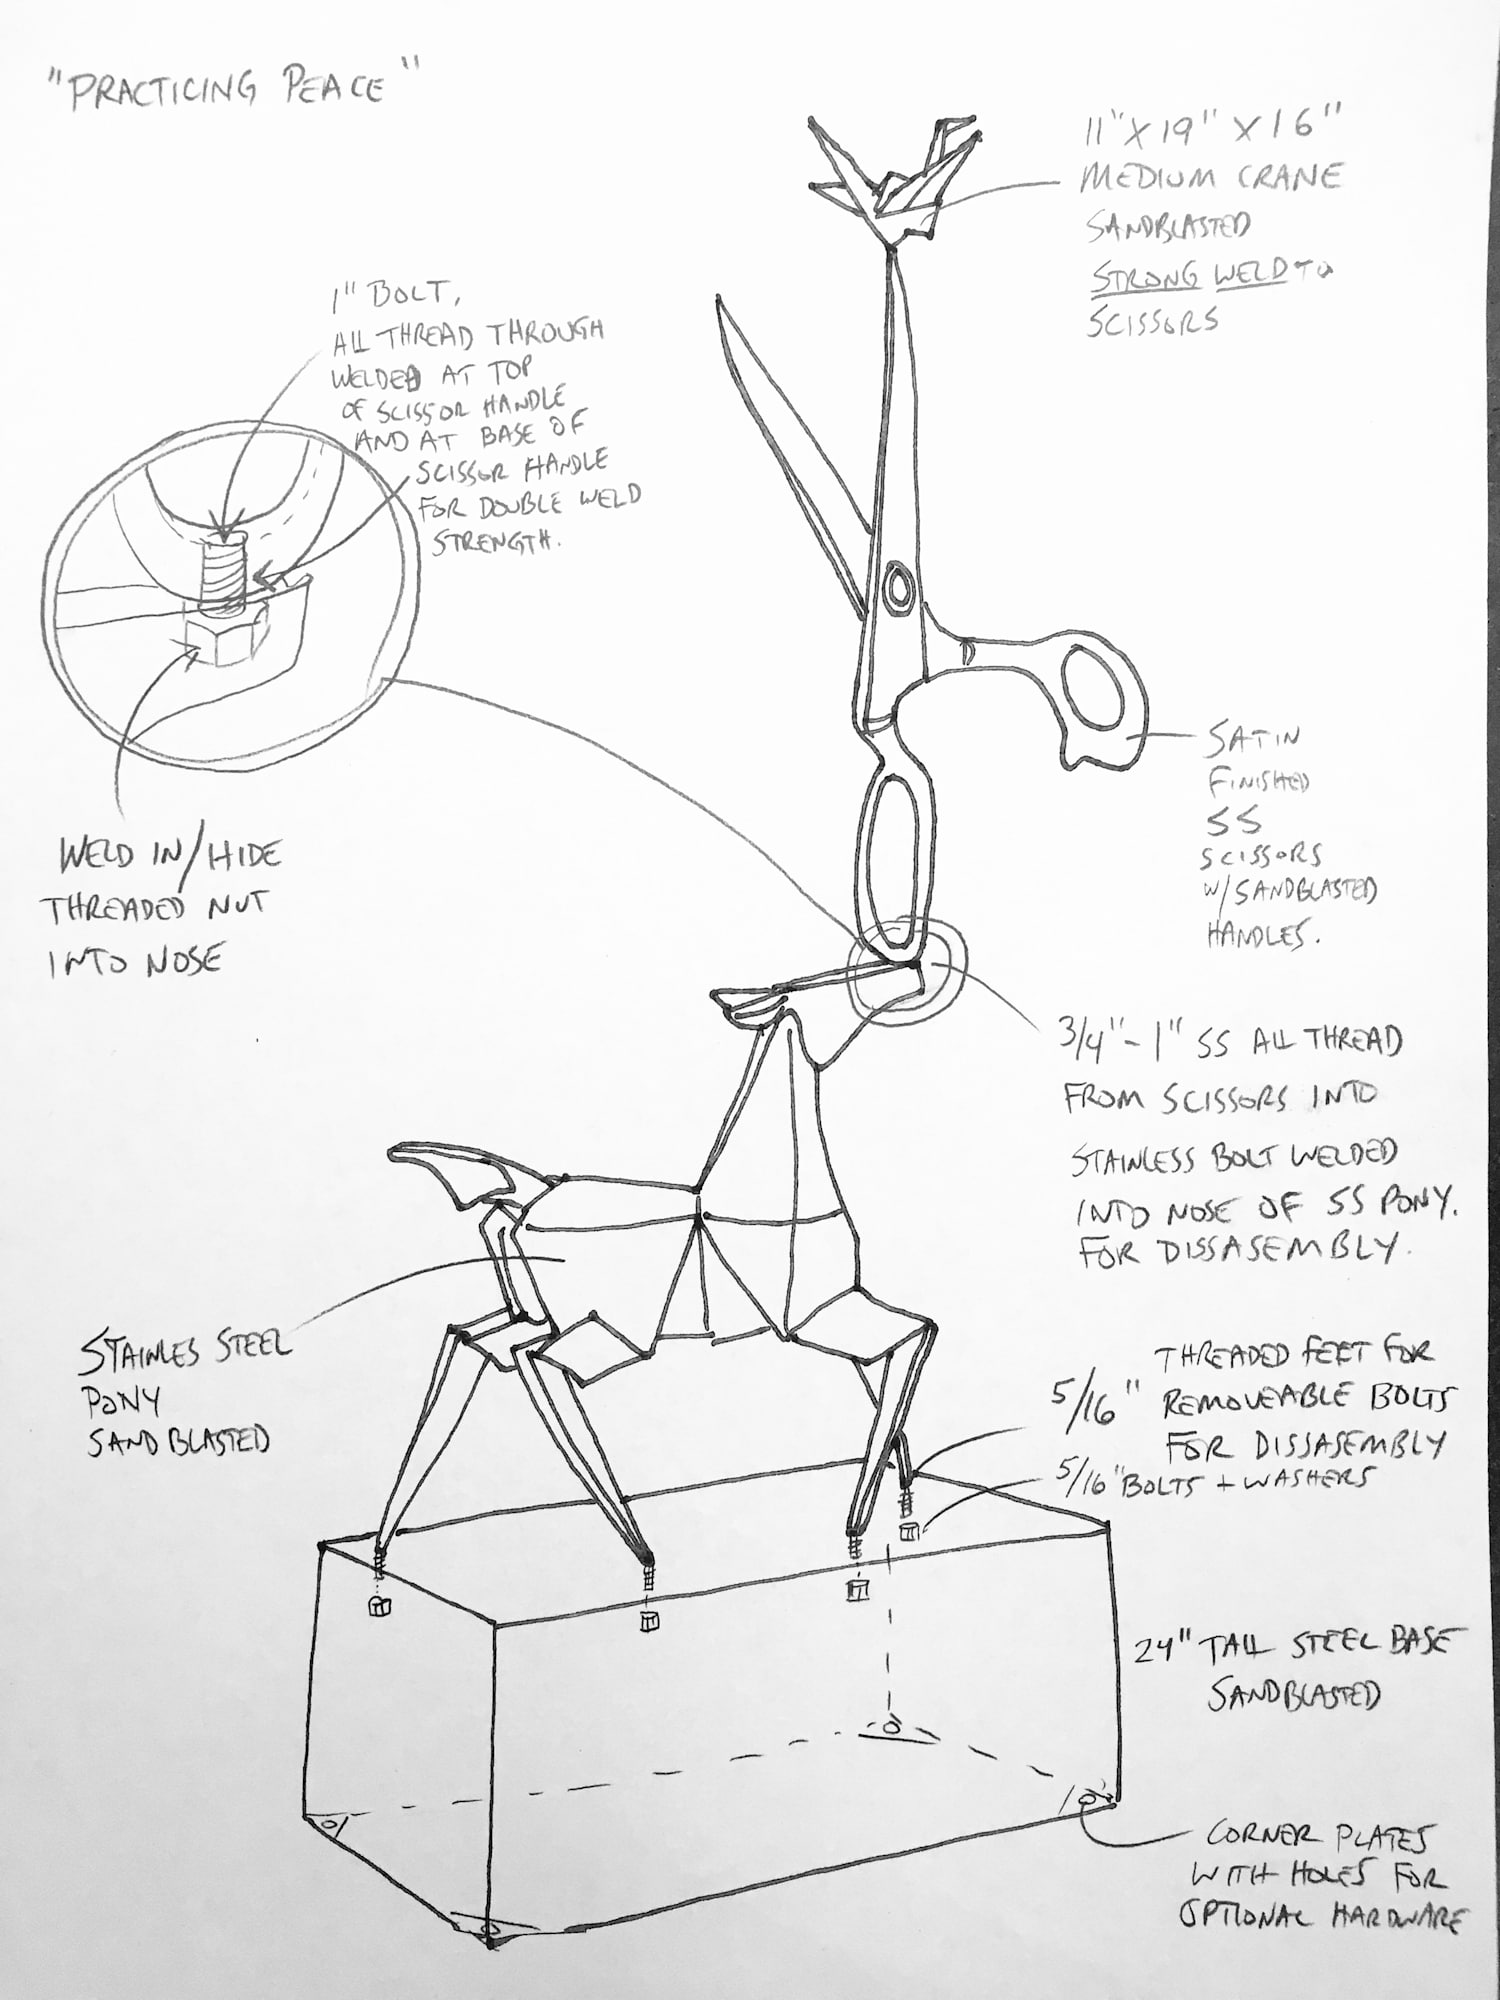 "PRACTICING PEACE"
11" X 19" X 16"
MEDIUM CRANE
SANDBLASTED
STRONG WELD TO
SCISSORS
1" BOLT,
ALL THREAD THROUGH
WELDED AT TOP
OF SCISSOR HANDLE
AND AT BASE OF
SCISSOR HANDLE
FOR DOUBLE WELD
STRENGTH.
WELD IN/HIDE
THREADED NUT
INTO NOSE
SATIN
FINISHED
SS
SCISSORS
W/SANDBLASTED
HANDLES.
3/4"-1" SS ALL THREAD
FROM SCISSORS INTO
STAINLESS BOLT WELDED
INTO NOSE OF SS PONY.
FOR DISSASEMBLY.
STAINLES STEEL
PONY
SANDBLASTED
THREADED FEET FOR
5/16" REMOVEABLE BOLTS
FOR DISSASEMBLY
5/16" BOLTS + WASHERS
24" TALL STEEL BASE
SANDBLASTED
CORNER PLATES
WITH HOLES FOR
OPTIONAL HARDWARE